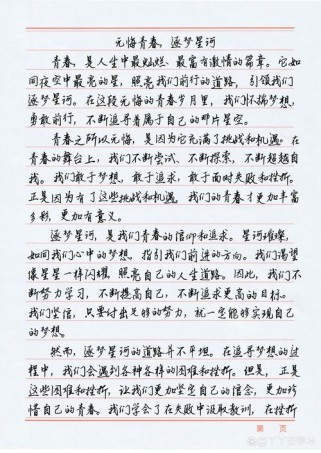 无悔青春、逐梦星河
青春，是人生中最灿烂、最富有激情的篇章。它如
同夜空中最亮的星，照亮我们前行的道路，引领我们
逐梦星河。在这段无悔的青春岁月里，我们怀揣梦想，
勇敢前行，不断追寻着属于自己的那片星空。
青春之所以无悔，是因为它充满了挑战和机遇。在
青春的舞台上，我们不断尝试、不断探索，不断超越自
我。我们敢于梦想，敢于追求，敢于面对失败和挫折。
正是因为有了这些挑战和机遇，我们的青春才更加丰富
多彩，更加有意义。
逐梦星河，是我们青春的信仰和追求。星河璀璨，
如同我们心中的梦想，指引我们前进的方向。我们渴望
像星星一样闪耀，照亮自己的人生道路。因此，我们不
断努力学习，不断提高自己，不断追求更高的目标。
我们坚信，只要付出足够的努力，就一定能够实现自己
的梦想。
然而，逐梦星河的道路并不平坦。在追寻梦想的过
程中，我们会遇到各种各样的困难和挫折。但是，正是
这些困难和挫折，让我们更加坚定自己的信念，更加珍
惜自己的青春。我们学会了在失败中汲取教训，在挫折
第 页